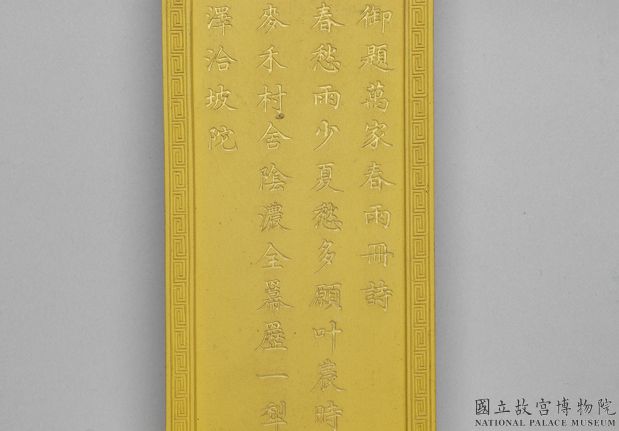 御題萬家春雨冊詩
春愁雨少夏愁多願叶宸時
麥禾村舍陰濃全羃歷一犁
澤洽坡陀
國立故宮博物院
NATIONAL PALACE MUSEUM